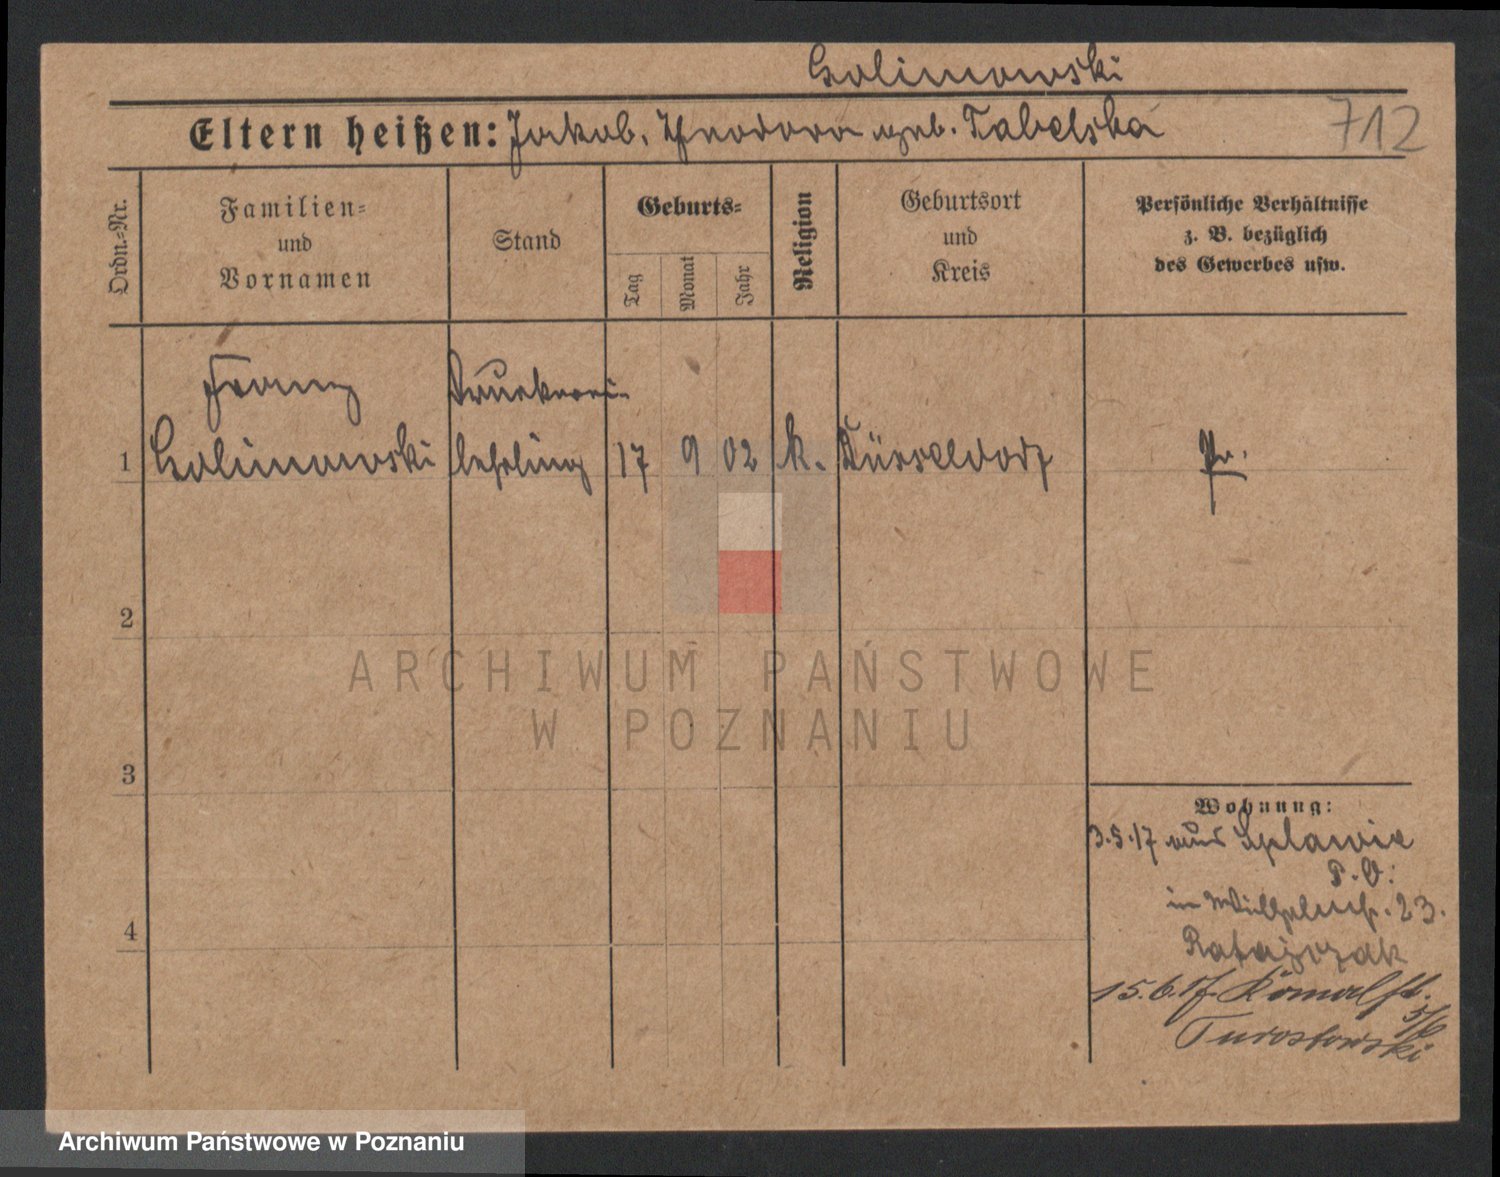 Golimowski
Eltern heißen: Jakob, Theodora geb. Tabelska
712
Ordn.-Nr.
Familien-
und
Vornamen
Stand
Geburts-
Tag
Monat
Jahr
Religion
Geburtsort
und
Kreis
Persönliche Verhältnisse
z. B. bezüglich
des Gewerbes usw.
Franz Druckerei-
1 Golimowski lehrling 17 9 02 k. Düsseldorf Pr.
2
3
4
Wohnung:
3.5.17 aus Splawie
P. O.
in Wilhelmstr. 23.
Ratajczak
15.6.17 
5/6
Turostowski
ARCHIWUM PAŃSTWOWE
W POZNANIU
Archiwum Państwowe w Poznaniu